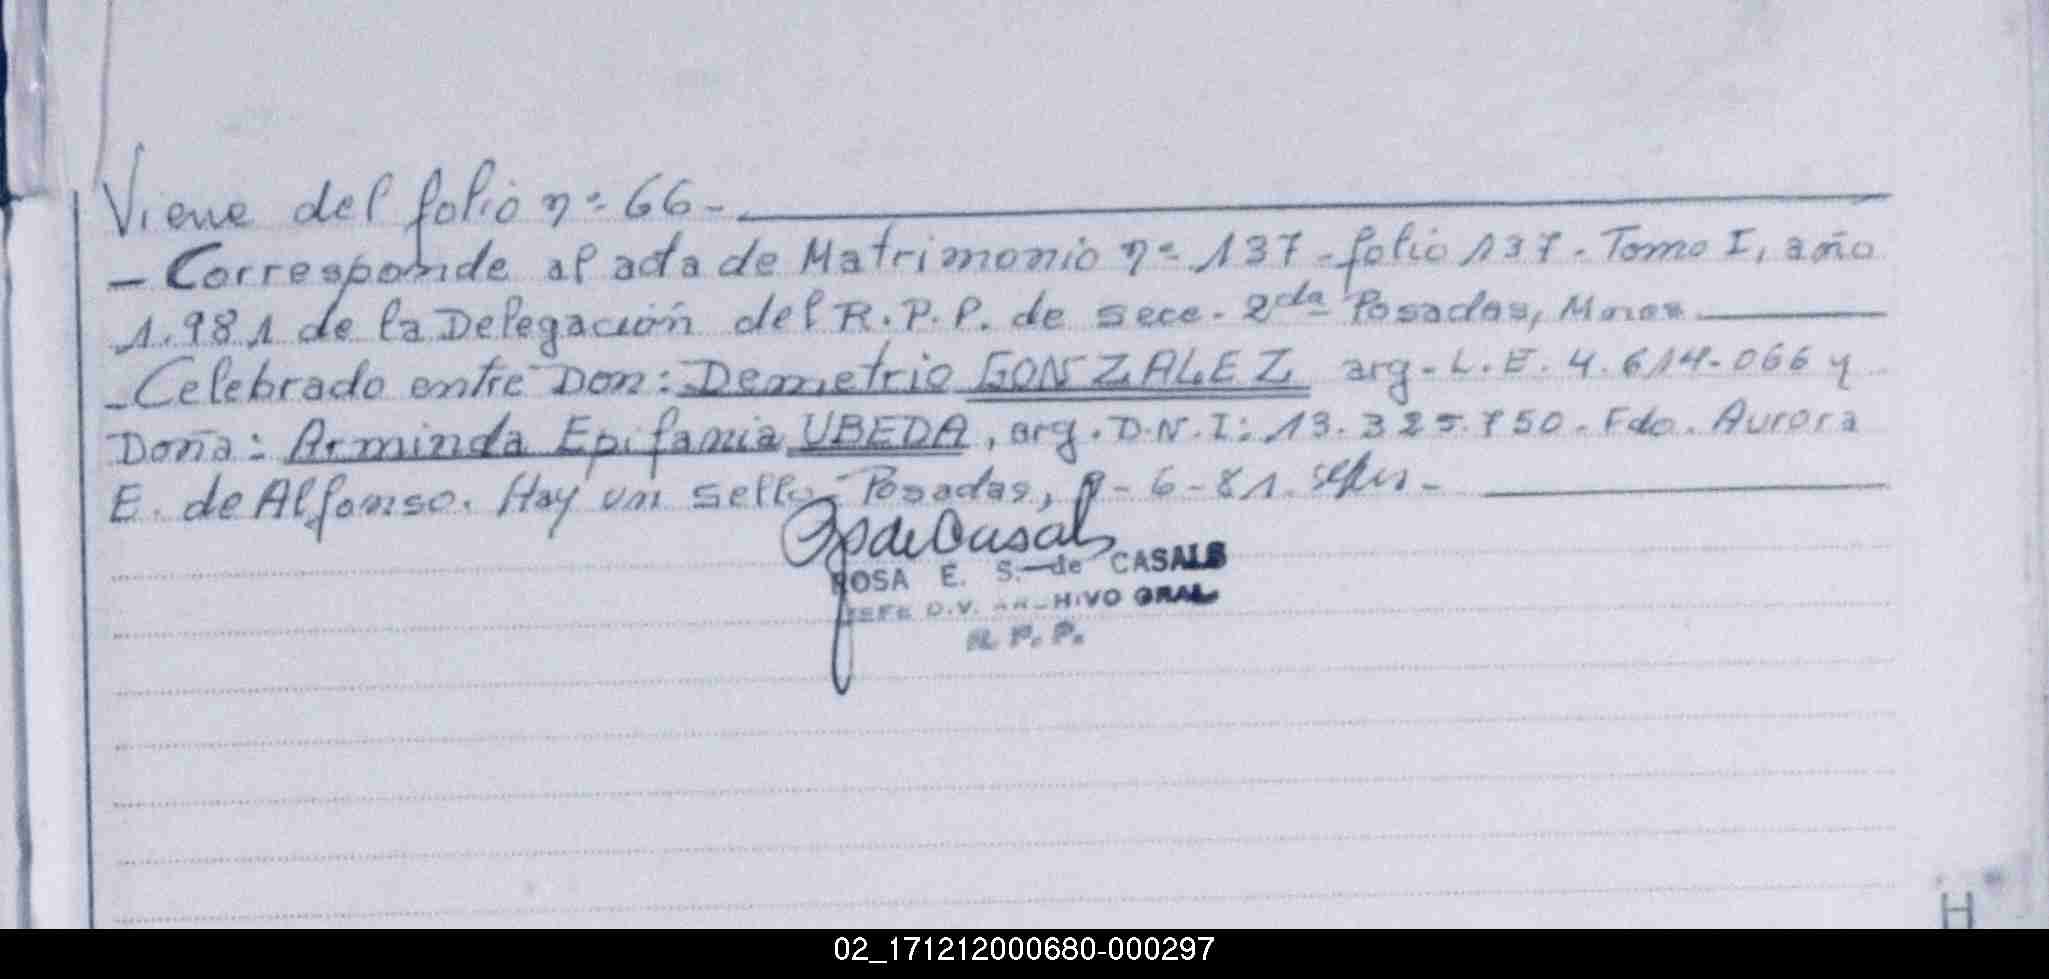 Viene del folio nº 66-
- Corresponde al acta de Matrimonio nº 137 - folio 137. Tomo I, año
1.981 de la Delegación del R.P.P. de secc. 2da Posadas, Mnes.
- Celebrado entre Don: Demetrio GONZALEZ arg. L.E. 4.614.066 y
Doña: Arminda Epifania UBEDA, arg. D.N.I: 13.325.750. Fdo. Aurora
E. de Alfonso. Hay un sello. Posadas, - 6 - 81.
ROSA E. S. de CASALS
JEFE DIV. ARCHIVO GRAL
R. P. P.
H
02_171212000680-000297